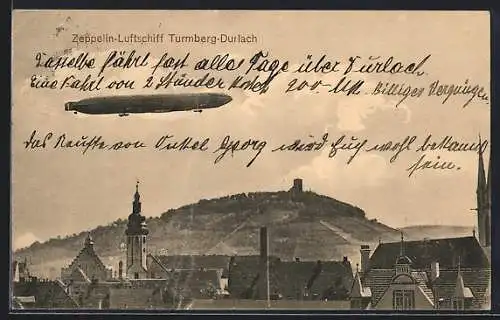 Zeppelin-Luftschiff Turmberg-Durlach
Dasselbe fährt fast alle Tage über Durlach,
Eine Fahrt von 2 Stunden kostet 200-Mk. billiges Vergnügen.
das Neuste von Onkel Georg wird Euch wohl bekannt
sein.